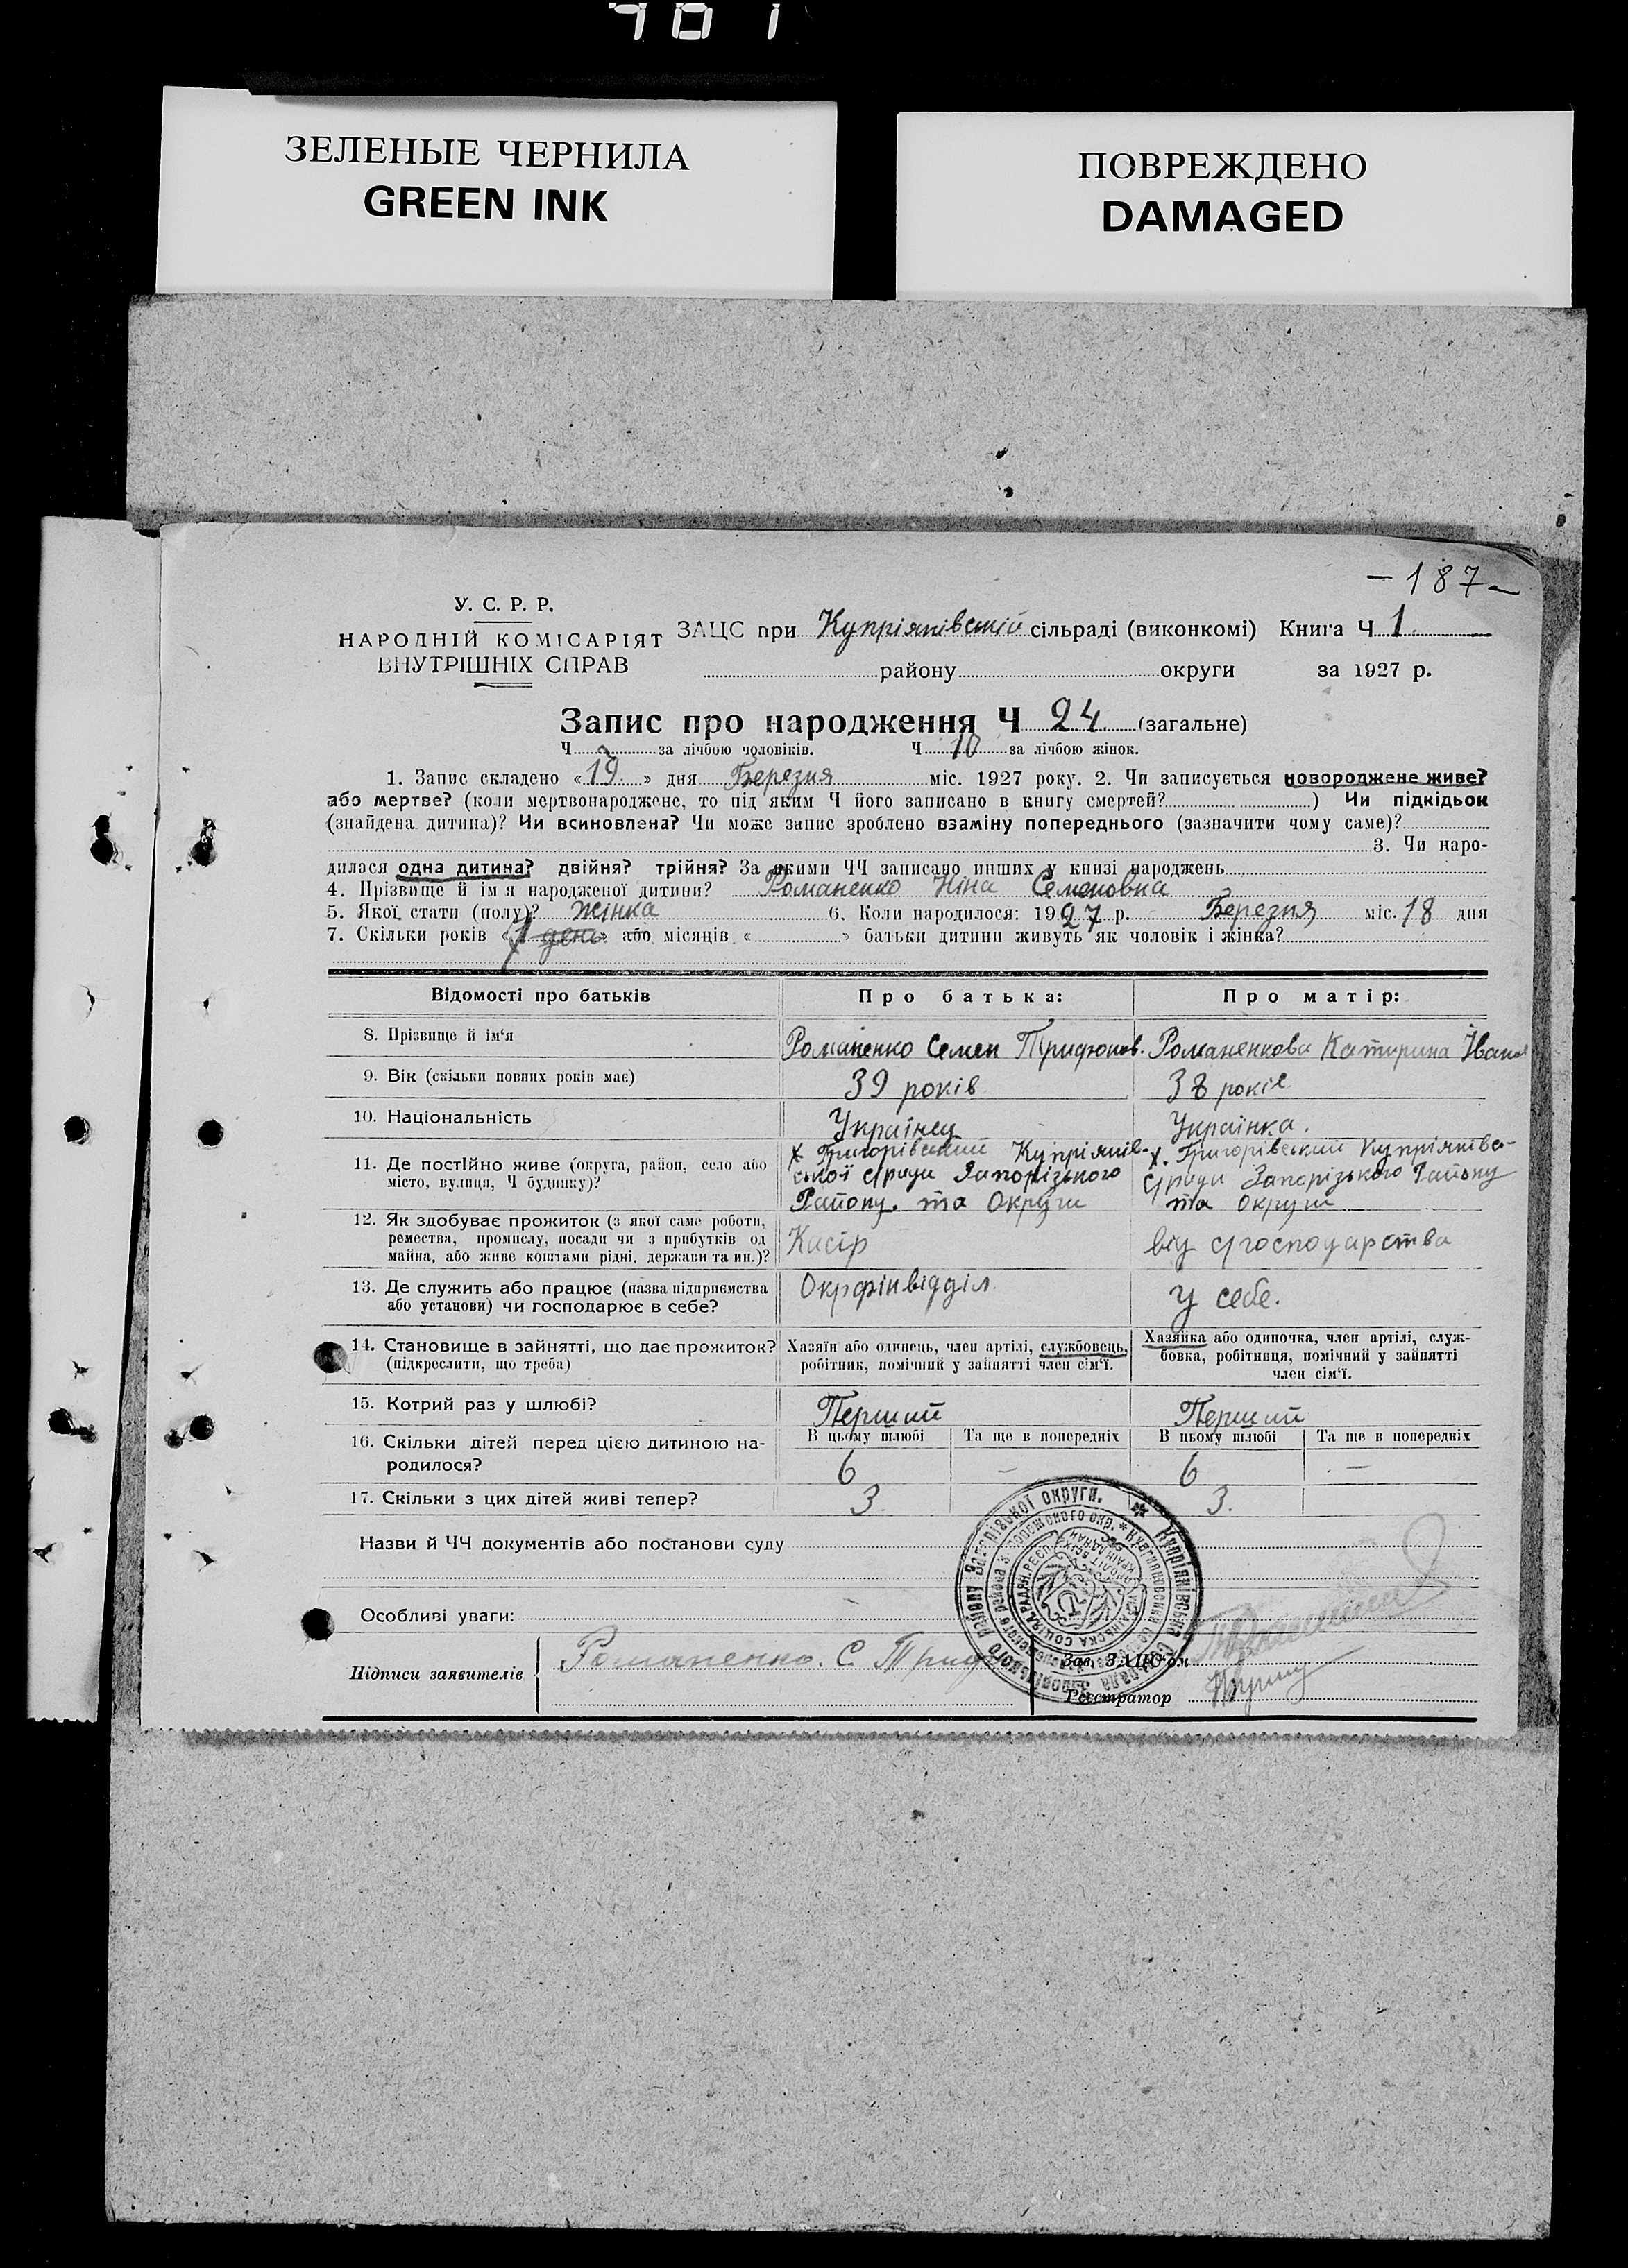 701
ЗЕЛЕНЫЕ ЧЕРНИЛА
GREEN INK
ПОВРЕЖДЕНО
DAMAGED
– 187 –
У. С. Р. Р.
НАРОДНІЙ КОМІСАРІЯТ
ВНУТРІШНІХ СПРАВ
ЗАЦС при Купріянівській сільраді (виконкомі) Книга Ч 1
району округи за 1927 р.
Запис про народження Ч 24 (загальне)
Ч за лічбою чоловіків. Ч 10 за лічбою жінок.
1. Запис складено «19» дня Березня міс. 1927 року. 2. Чи записується новороджене живе?
або мертве? (коли мертвонароджене, то під яким Ч його записано в книгу смертей? ) Чи підкідьок
(знайдена дитина)? Чи всиновлена? Чи може запис зроблено взаміну попереднього (зазначити чому саме)?
3. Чи наро-
дилася одна дитина? двійня? трійня? За якими ЧЧ записано инших у книзі народжень
4. Прізвище й ім'я народженої дитини? Романенко Ніна Семеновна
5. Якої стати (полу)? Жінка 6. Коли народилося: 1927 р. Березня міс. 18 дня
7. Скільки років «1 день» або місяців « » батьки дитини живуть як чоловік і жінка?
Відомості про батьків Про батька: Про матір:
8. Прізвище й ім'я Романенко Семен Трифонов. Романенкова Катирина Іван
9. Вік (скільки повних років має) 39 років 38 років
10. Національність Українец Українка.
11. Де постійно живе (округа, район, село або
місто, вулиця, Ч будинку)?
х Григорівський Купріянів-
ської с/ради Запорізького
Району. та Округи
х. Григорівський Купріянівс-
с/ради Запорізького Району
та округи
12. Як здобуває прожиток (з якої саме роботи,
ремества, промислу, посади чи з прибутків од
майна, або живе коштами рідні, держави та ин.)?
Касір
від с/господарства
13. Де служить або працює (назва підприємства
або установи) чи господарює в себе?
Окрфінвідділ.
У себе.
14. Становище в зайнятті, що дає прожиток?
(підкреслити, що треба)
Хазяїн або одинець, член артілі, службовець,
робітник, помічний у зайнятті член сім'ї.
Хазяйка або одиночка, член артілі, служ-
бовка, робітниця, помічний у зайнятті
член сім'ї.
15. Котрий раз у шлюбі? Перший Перший
16. Скільки дітей перед цією дитиною на-
родилося?
В цьому шлюбі Та ще в попередніх В цьому шлюбі Та ще в попередніх
6 – 6 –
17. Скільки з цих дітей живі тепер? 3. 3.
Назви й ЧЧ документів або постанови суду
Особливі уваги:
Підписи заявителів Романенко. С. Триф
Зав. ЗАЦС'ом
Реєстратор
Купріянівська сільрада Запорізького району Запорізької округи.